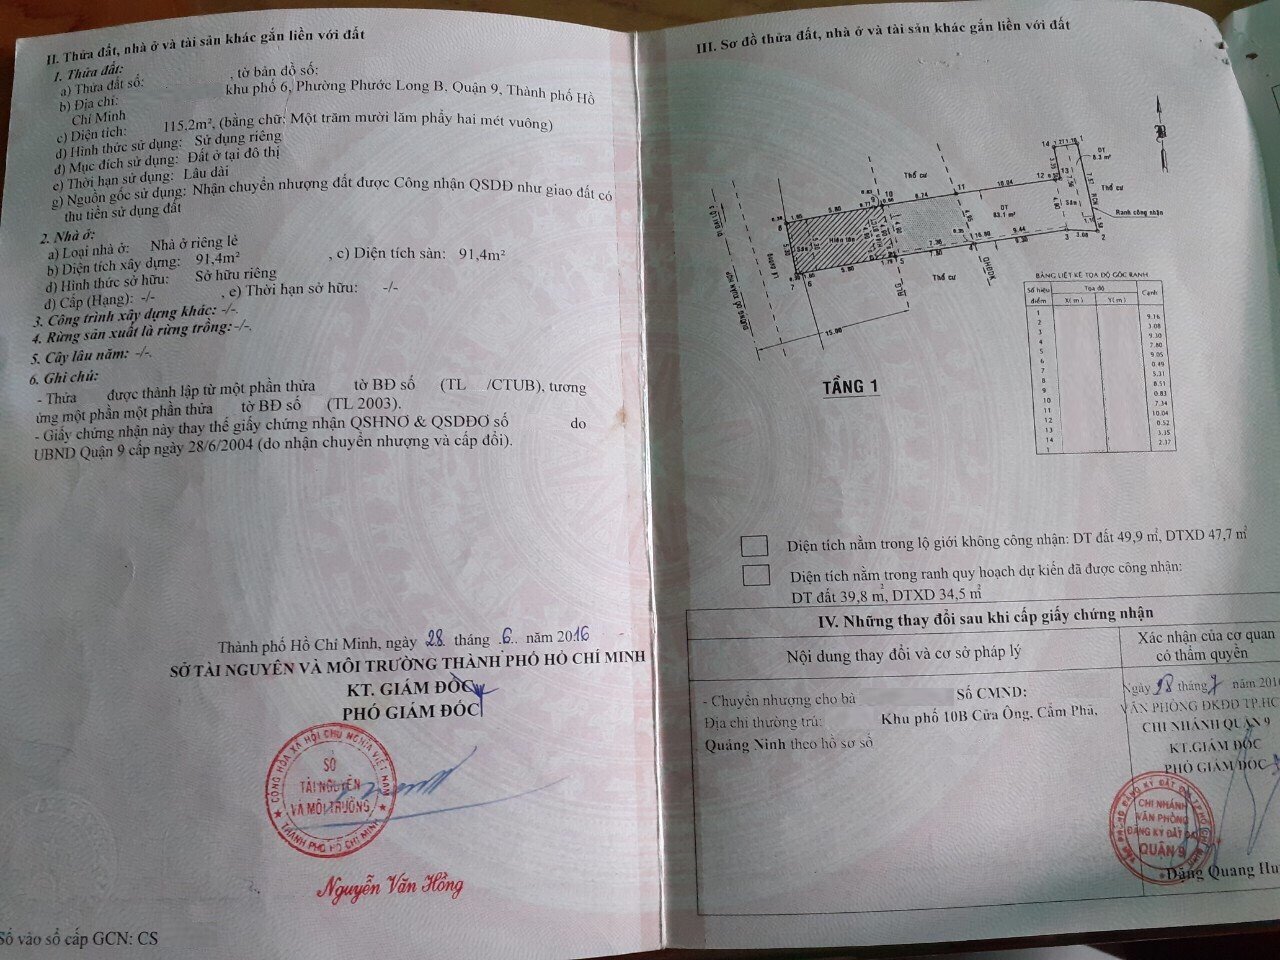 II. Thửa đất, nhà ở và tài sản khác gắn liền với đất
1. Thửa đất:
a) Thửa đất số: , tờ bản đồ số:
b) Địa chỉ: khu phố 6, Phường Phước Long B, Quận 9, Thành phố Hồ
Chí Minh
c) Diện tích: 115,2m², (bằng chữ: Một trăm mười lăm phẩy hai mét vuông)
d) Hình thức sử dụng: Sử dụng riêng
đ) Mục đích sử dụng: Đất ở tại đô thị
e) Thời hạn sử dụng: Lâu dài
g) Nguồn gốc sử dụng: Nhận chuyển nhượng đất được Công nhận QSDĐ như giao đất có
thu tiền sử dụng đất
2. Nhà ở:
a) Loại nhà ở: Nhà ở riêng lẻ
b) Diện tích xây dựng: 91,4m² , c) Diện tích sàn: 91,4m²
d) Hình thức sở hữu: Sở hữu riêng
đ) Cấp (Hạng): -/- , e) Thời hạn sở hữu: -/-
3. Công trình xây dựng khác: -/-.
4. Rừng sản xuất là rừng trồng: -/-.
5. Cây lâu năm: -/-.
6. Ghi chú:
- Thửa được thành lập từ một phần thửa tờ BĐ số (TL /CTUB), tương
ứng một phần một phần thửa tờ BĐ số (TL 2003).
- Giấy chứng nhận này thay thế giấy chứng nhận QSHNƠ & QSDĐƠ số do
UBND Quận 9 cấp ngày 28/6/2004 (do nhận chuyển nhượng và cấp đổi).
Thành phố Hồ Chí Minh, ngày 28 tháng 6 năm 2016
SỞ TÀI NGUYÊN VÀ MÔI TRƯỜNG THÀNH PHỐ HỒ CHÍ MINH
KT. GIÁM ĐỐC
PHÓ GIÁM ĐỐC
CỘNG HÒA XÃ HỘI CHỦ NGHĨA VIỆT NAM
SỞ
TÀI NGUYÊN
VÀ MÔI TRƯỜNG
THÀNH PHỐ HỒ CHÍ MINH
Nguyễn Văn Hồng
Số vào sổ cấp GCN: CS
III. Sơ đồ thửa đất, nhà ở và tài sản khác gắn liền với đất
14
1
DT
8.3 m²
Thổ cư
12
13
11
10
10.04
6.74
5.80
DT
83.1 m²
Sân
Hiên lầu
Ranh công nhận
9.44
9.30
3.08
3
2
4
5
6
7
8
7.50
5.80
Thổ cư
15.00
TẦNG 1
BẢNG LIỆT KÊ TỌA ĐỘ GÓC RANH
Số hiệu điểm Tọa độ Cạnh
X( m ) Y( m )
1
9.16
2
3.08
3
9.30
4
7.80
5
9.05
6
0.49
7
5.31
8
8.51
9
0.83
10
7.34
11
10.04
12
0.52
13
3.35
14
2.37
1
Diện tích nằm trong lộ giới không công nhận: DT đất 49,9 m², DTXD 47,7 m²
Diện tích nằm trong ranh quy hoạch dự kiến đã được công nhận:
DT đất 39,8 m², DTXD 34,5 m²
IV. Những thay đổi sau khi cấp giấy chứng nhận
Nội dung thay đổi và cơ sở pháp lý
Xác nhận của cơ quan
có thẩm quyền
- Chuyển nhượng cho bà Số CMND:
Địa chỉ thường trú: Khu phố 10B Cửa Ông, Cẩm Phả,
Quảng Ninh theo hồ sơ số
Ngày 18 tháng 7 năm 2016
VĂN PHÒNG ĐKĐĐ TP.HC
CHI NHÁNH QUẬN 9
KT.GIÁM ĐỐC
PHÓ GIÁM ĐỐC
CHI NHÁNH
VĂN PHÒNG
ĐĂNG KÝ ĐẤT ĐAI
QUẬN 9
Đặng Quang Hu